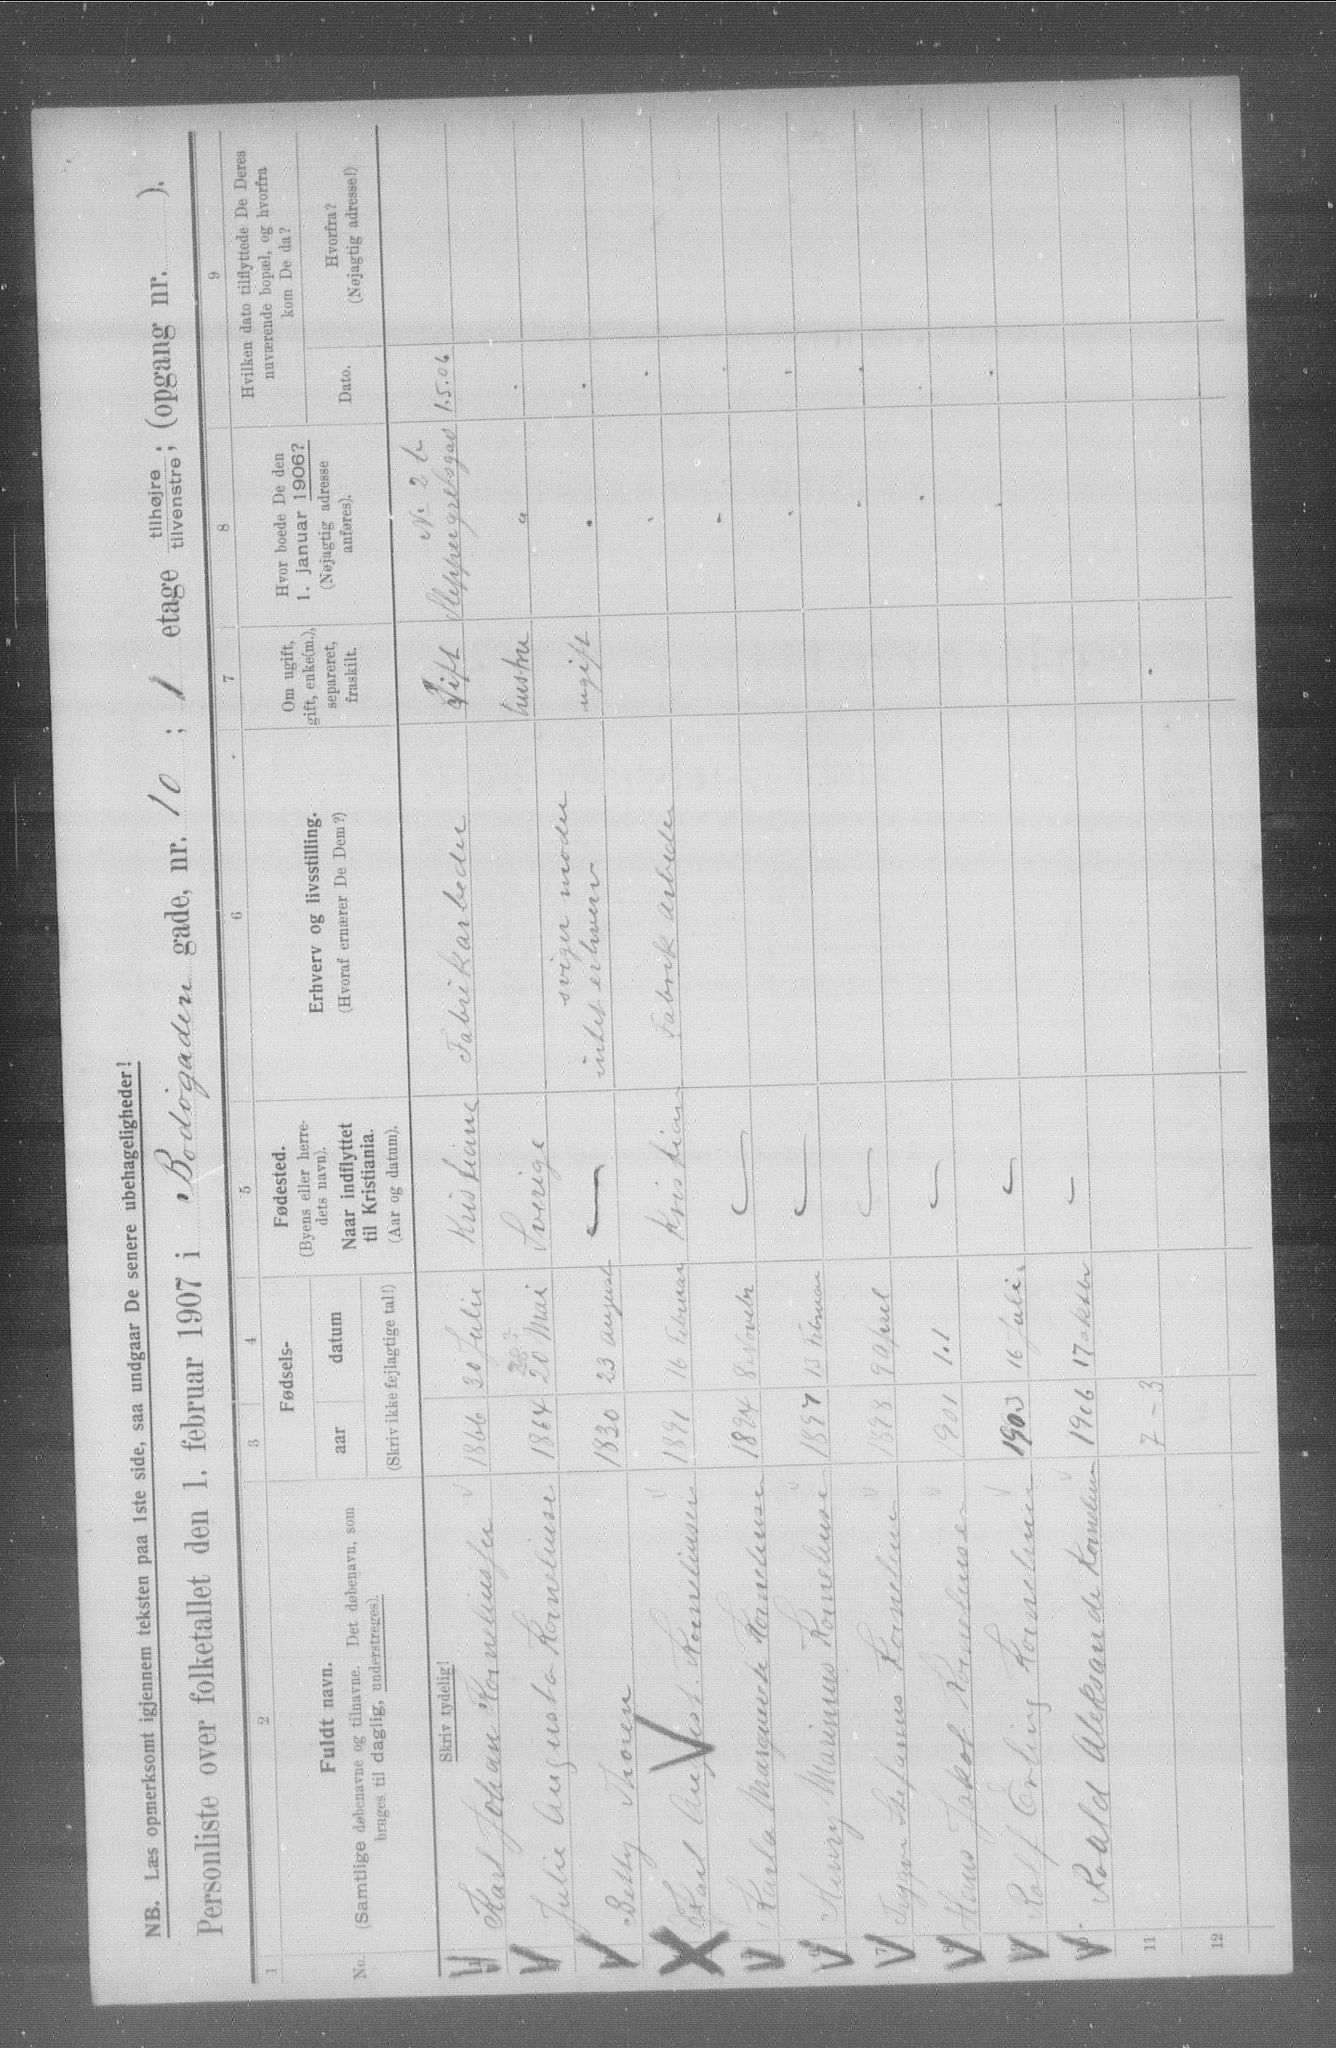 NB. Læs opmerksomt igjennem teksten paa 1ste side, saa undgaar De senere ubehageligheder!
Personliste over folketallet den 1. februar 1907 i Bodøgaden gade, nr. 10 ; 1 etage tilhøjre / tilvenstre ; (opgang nr. ).
1 2 3 4 5 6 7 8 9
No.
Fuldt navn.
(Samtlige døbenavne og tilnavne. Det døbenavn, som
bruges til daglig, understreges).
Fødsels-
aar datum
(Skriv ikke fejlagtige tal!)
Fødested.
(Byens eller herre-
dets navn).
Naar indflyttet
til Kristiania.
(Aar og datum).
Erhverv og livsstilling.
(Hvoraf ernærer De Dem?)
Om ugift,
gift, enke(m.),
separeret,
fraskilt.
Hvor boede De den
1. januar 1906?
(Nøjagtig adresse
anføres).
Hvilken dato tilflyttede De Deres
nuværende bopæl, og hvorfra
kom De da?
Dato.
Hvorfra?
(Nøjagtig adresse!)
Skriv tydelig!
Karl Johan Korneliussen 1866 30 Julie Kristiana Fabrikarbeder Gift No 2 b 1.5.06
Julie Augusta Korneliuse 1864 20 Mai Sverige hustru "
sviger moder
Betty Thoren 1830 23 august intet erhverv ugift
Karl August. Korneliusen 1891 16 Februar Kristian Fabrik arbeder
Karla Margrete Korneliusen 1894 8 Novebr
Henry Marinius Korneliusen 1897 13 Februar
7 Stefanus Korneliusen 1898 9 April
8 Hans Jakob Korneliusen 1901 1.1
Rolf Erling Korneliusen 1903 16 Juli
Roald Aleksander Korneliusen 1906 17 oktobr
11 7-3
12